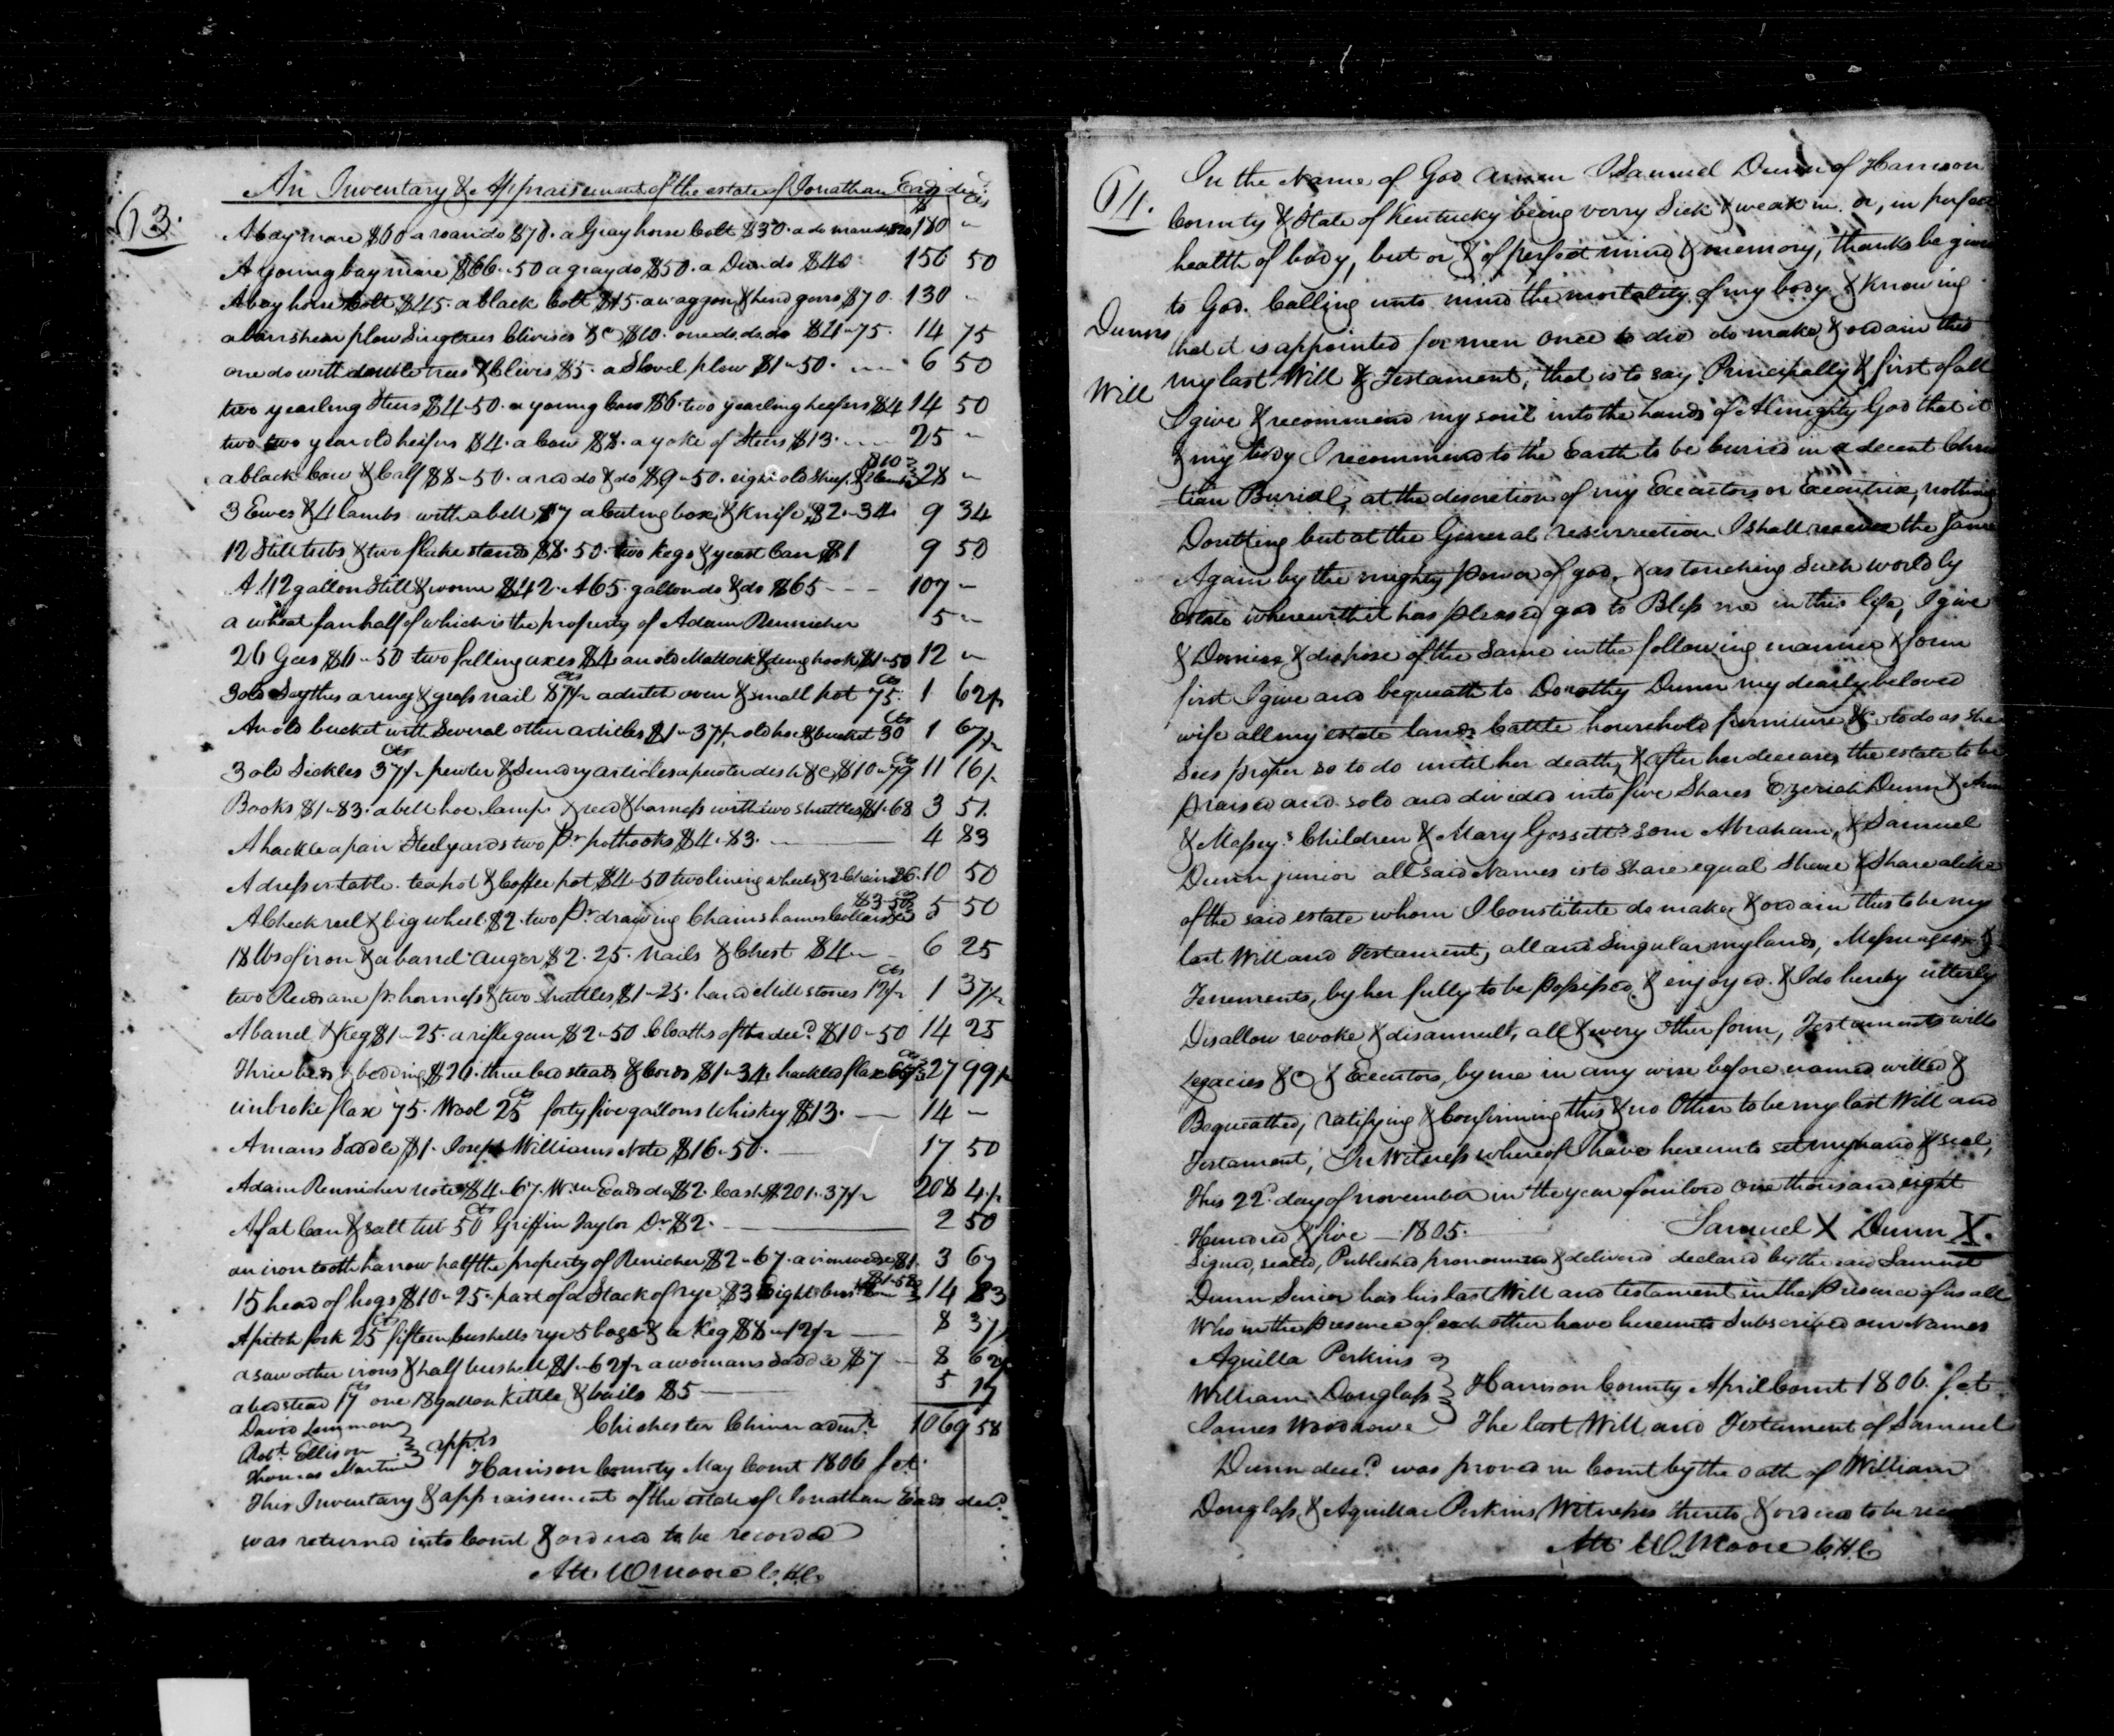 63.
An Inventary & Appraisement of the estate of Jonathan Eads decd.
$ Cts
A bay mare $60 a roan do $70. a Gray horse Colt $30. a do mare do $20 180 "
A young bay mare $66"50 a gray do $50. a Dun do $40 156 50
A bay horse Colt $45. a black Colt $15. a waggon & hind gears $70. 130 "
a barshear plow Singtrees Clivises &C $10. one do. do. do $4"75. 14 75
one do with double trees & Clivis $5. a Shovel plow $1"50. 6 50
two yearling Steers $4-50. a young Cow $6. two yearling heifers $4 14 50
two two year old heifers $4. a Cow $8. a yoke of Steers $13. 25 "
a black Cow & Calf $8"50. a red do & do $9"50. eight old Sheep & lambs $10 28 "
3 Ewes & 4 lambs with a bell $7 a Cuting box & Knife $2"34 9 34
12 Still tubs & two flake stands $8.50. two Kegs & yeast Can $1 9 50
A 112 gallon Still & worm $42. A 65. gallon do & do $65 107 "
a wheat fan half of which is the property of Adam Rennicker 5 "
26 Gees $6"50 two falling axes $4 an old Mattock & dung hook $1"50 12 "
3 old Scythes a ring & grass nail 87½ Cts a dutch oven & small pot 75 Cts 1 62½
An old bucket with Several other articles $1"37½ old hoe & bucket 30 Cts 1 67½
3 old Sickles 37½ Cts pewter & Sundry articles a pewter dish &C $10"79 Cts 11 16½
Books $1-83. a bell hoe lamp & reed & harness with two shuttles $1.68 3 51
A hackle a pair Steelyards two pr. pothooks $4.83. 4 83
A dresser table. teapot & Coffee pot $4-50 two lining wheels & 2 Chairs $6. 10 50
A Check reel & big wheel $2. two pr. drawing Chains hames Collars &C $3-50 5 50
18 lbs of iron & a barrel Auger $2.25. nails & Chest $4" 6 25
two Reeds one pr. harness & two Shuttles $1-25. hand Mill stones 12½ Cts 1 37½
A barrel & Keg $1"25. a rifle gun $2"50 Cloaths of the decd. $10"50 14 25
Three beds & bedding $26. three bedsteads & Cords $1"34. hackled flax 65½ Cts 27 99½
unbroke flax 75. Wool 25 Cts forty five gallons Whiskey $13. 14 "
A mans Saddle $1. Joseph Williams Note $16"50. 17 50
Adam Rennicker note $4"67. Wm. Eads do $2. Cash $201"37½ 208 4½
A fat Can & salt tub 50 Cts Griffin Taylor Dr. $2. 2 50
an iron tooth harrow half the property of Renicker $2"67. a iron wedge $1. 3 67
15 head of hogs $10"25. part of a Stack of rye $3 Eight bus. Corn $1-58 14 83
A pitch fork 25 Cts fifteen bushells rye 5 bags & a Keg $8"12½ 8 37½
a saw other irons & half bushell $1"62½ a womans saddle $7 8 62½
a bedstead 17 Cts one 18 gallon Kittle & bails $5 5 17
1069 58
David Lingman
Robt. Ellison
Thomas Martin
apprs
Chichester Chinn admr.
Harrison County May Court 1806 Sct.
This Inventary & appraisement of the estate of Jonathan Eads decd.
was returned into Court & ordered to be recorded
Att. W Moore C.H.C.
64.
Dunns
Will
In the Name of God Amen I Samuel Dunn of Harrison
County & State of Kentucky being verry Sick & weak in. or, in perfect
health of body, but or & of perfect mind & memory, thanks be given
to God. Calling unto mind the mortality of my body & Knowing
that it is appointed for men once to die do make & ordain this
my last Will & Testament, that is to say Principally & first of all
I give & recommend my soul into the hands of Almighty God that it
& my body I recommend to the Earth to be buried in a decent Chris
-tian Burial, at the discretion of my Executors or Executrix, nothing
Doubting but at the General resurrection I shall receive the Same
Again by the mighty power of god, & as touching Such world by
Estate wherewith it has pleased god to Bless me in this life, I give
& Demise & dispose of the Same in the following manner & form
first I give and bequeath to Dorothy Dunn my dearly beloved
wife all my estate lands Cattle household furniture & to do as She
Sees proper so to do until her death, & after her decease, the estate to be
praised and sold and divided into five Shares Ezeriah Dunn & Ann
& Massey's Children & Mary Gossett's Son Abraham, & Samuel
Dunn junior all said Names is to Share equal Share & Share alike
of the said estate whom I Constitute do make & ordain this to be my
last Will and Testament, all and Singular my lands, Messuages &
Tenements, by her fully to be possessed, & enjoyed. & I do hereby utterly
Disallow revoke & disannull, all & every other form, Testaments wills
Legacies &C & Executors, by me in any wise before named willed &
Bequeathed, ratifying & Confirming this & no Other to be my last Will and
Testament, In Witness whereof I have hereunto set my hand & seal,
This 22d. day of november in the year of our lord one thousand eight
Hundred & five 1805.
Samuel X Dunn X.
Signed, sealed, Published pronounced & delivered declared by the said Samuel
Dunn Senior has his last Will and testament in the Presence of us all
Who in the presence of each other have hereunto Subscribed our Names
Aquilla Perkins
William Douglass
James Woodrowe
Harrison County April Court 1806. Sct
The last Will and Testament of Samuel
Dunn decd. was proved in Court by the oath of William
Douglass & Aquillae Perkins, Witnesses thereto & ordered to be
Att. Wm Moore C.H.C